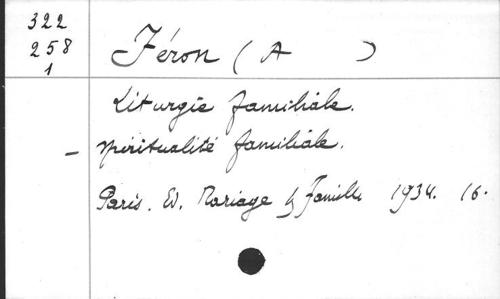 322
258
1
Féron (A )
Liturgie familiale.
– spiritualité familiale.
Paris. Ed. Mariage & Famille 1934. 16.